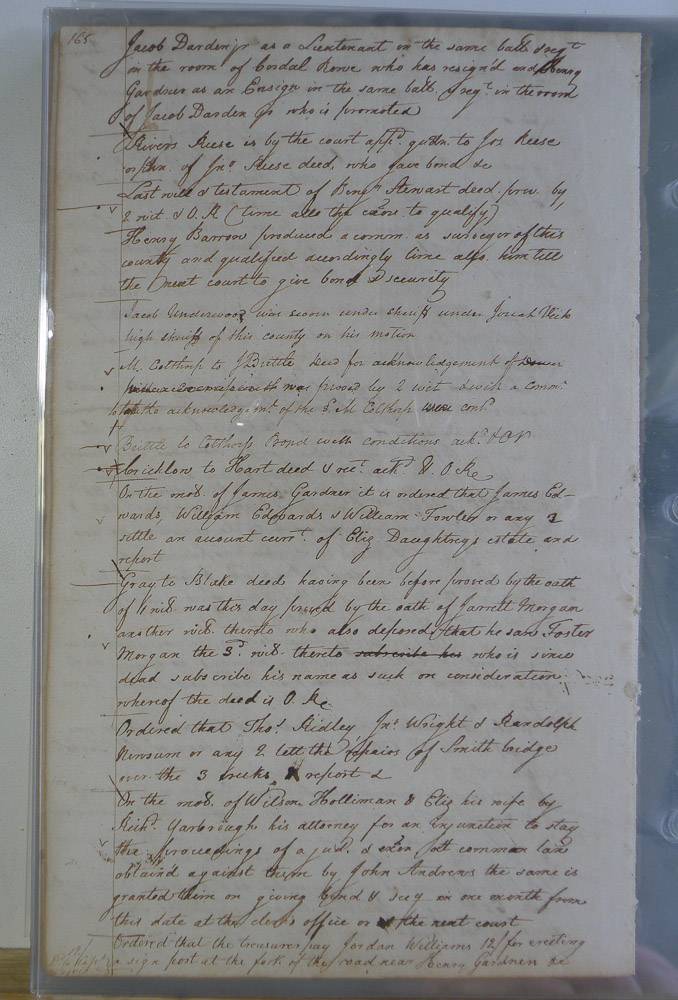 165
Jacob Darden jr as a Lieutenant in the same batt & regt
in the room of Cordal Rowe who has resign'd and Henry
Gardner as an Ensign in the same batt. & regt. in the room
of Jacob Darden Jr who is promoted
Rivers Reese is by the court appd. to Jos Reese
orphn. of Jno Reese deced, who gave bond &c
Last will & testament of Benjn Stewart deced. prov. by
2 wit & O.R (time allo the to qualify)
Henry Barrow produced a comm. as surveyor of this
county and qualified accordingly time allo. him till
the next court to give bond & security
Jacob Underwood was sworn under sheriff under Josiah Vick
high sheriff of this county on his motion
M. Colthorp to J Brittle deed for acknowledgement of
proved by 2 wit & with a commn.
the acknowledgemt. of the M Colthorp
Brittle to Colthorp Bond with conditions ackd. & OR
Cricklow to Hart deed & rect. ackd. & O Re
On the moo. of James Gardner it is ordered that James Ed-
wards, William Edwards & William Fowler or any 2
settle an account currt. of Eliz Daughtrey's estate and
report
Gray to Blake deed having been before proved by the oath
of 1 wit. was this day proved by the oath of Jarrett Morgan
another wit. thereto who also deposed that he saw Foster
Morgan the 3d. wit. thereto subscribe his who is since
dead subscribe his name as such on consideration
whereof the deed is O. Re
Ordered that Thos. Ridley Jno Wright & Randolph
Newsum or any 2 lett the repairs of Smith bridge
over the 3 creeks & report &
On the moo. of Wilson Holliman & Eliz his wife by
Richd. Yarborough his attorney for an injunction to stay
the proceedings of a jud. & exon att common law
obtaind against them by John Andrews the same is
granted them on giving bond & secy in one month from
this date at the clerks office or the next court
Ordered that the treasurer pay Jordan Williams 12/ for erecting
a sign post at the fork of the road near Henry Gardners &c